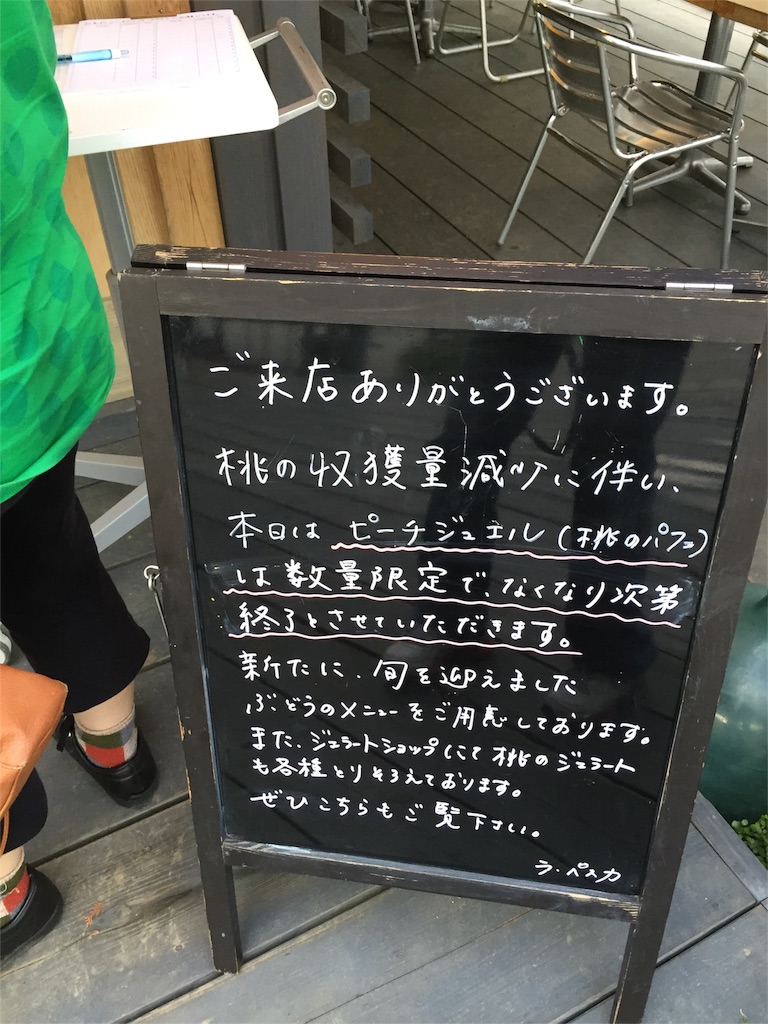 ご来店ありがとうございます。
桃の収獲量減少に伴い、
本日は ピーチジュエル(桃のパフェ)
は数量限定で、なくなり次第
終了とさせていただきます。
新たに、旬を迎えました
ぶどうのメニューをご用意しております。
また、ジェラートショップにて桃のジェラート
も各種とりそろえております。
ぜひこちらもご覧下さい。
ラ・ペスカ